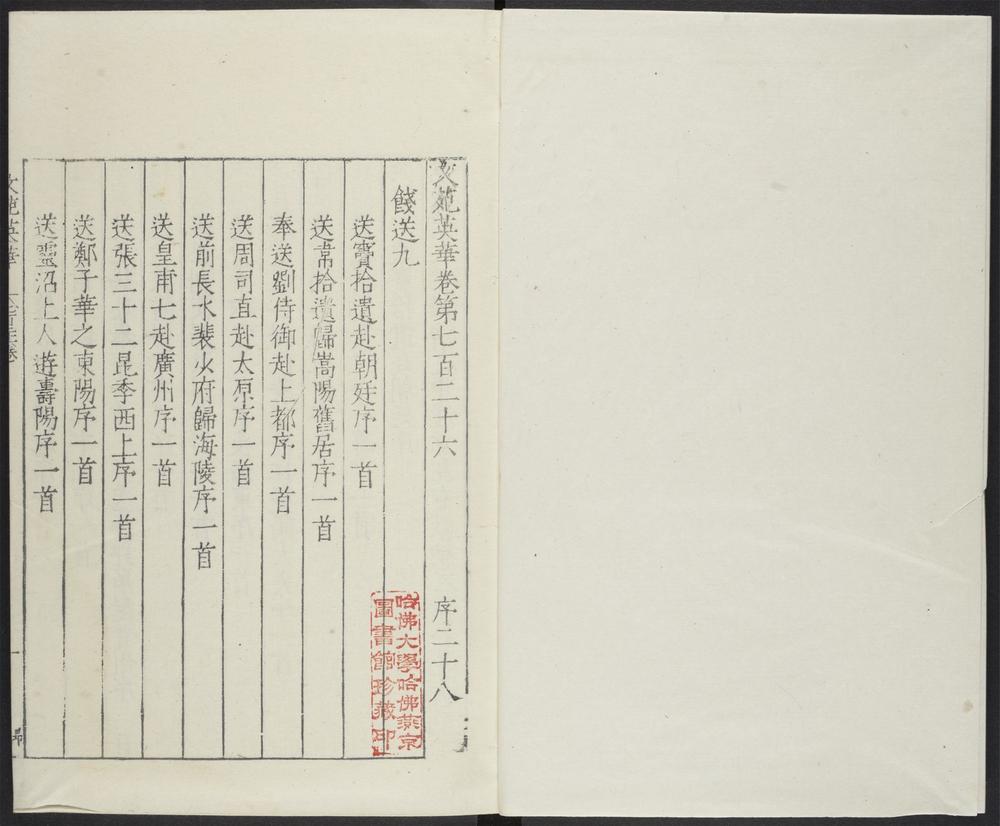 文苑英華卷第七百二十六 序二十八
餞送九
送竇拾遺赴朝廷序一首
送韋拾遺歸嵩陽舊居序一首
奉送劉侍御赴上都序一首
送周司直赴太原序一首
送前長水裴少府歸海陵序一首
送皇甫七赴廣州序一首
送張三十二昆季西上序一首
送鄭子華之東陽序一首
送靈沼上人遊壽陽序一首
文苑英華
一
哈佛大學哈佛燕京
圖書館珍藏印